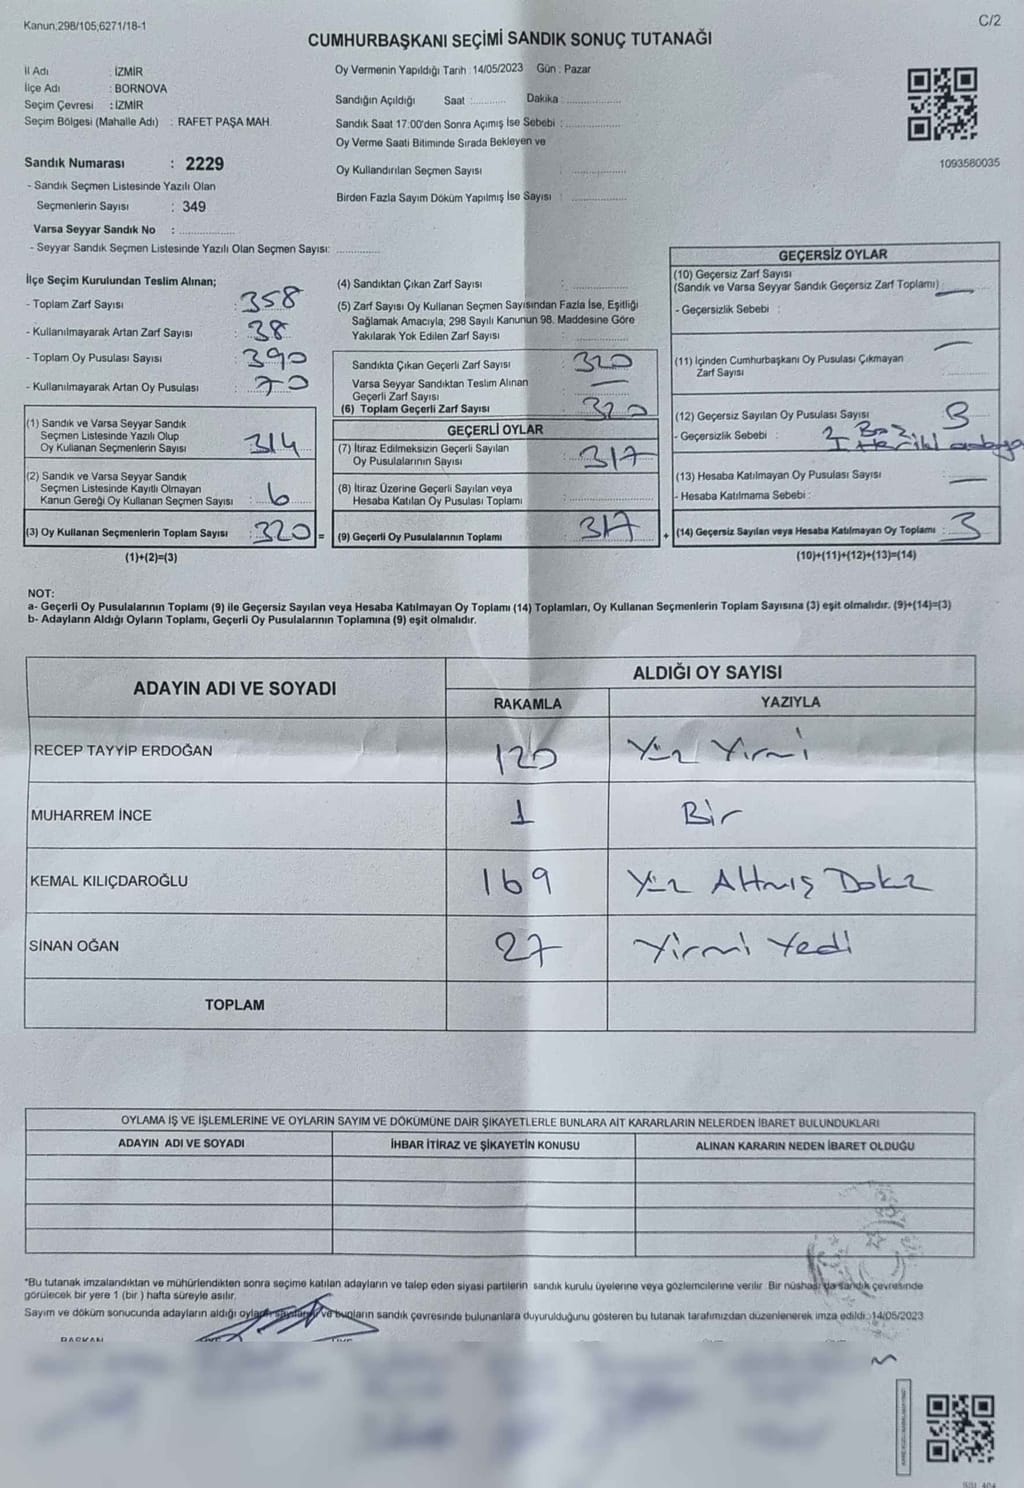 Kanun,298/105,6271/18-1
C/2
CUMHURBAŞKANI SEÇİMİ SANDIK SONUÇ TUTANAĞI
İl Adı : İZMİR
İlçe Adı : BORNOVA
Seçim Çevresi : İZMİR
Seçim Bölgesi (Mahalle Adı) : RAFET PAŞA MAH.
Sandık Numarası : 2229
- Sandık Seçmen Listesinde Yazılı Olan
Seçmenlerin Sayısı : 349
Varsa Seyyar Sandık No :
- Seyyar Sandık Seçmen Listesinde Yazılı Olan Seçmen Sayısı:
Oy Vermenin Yapıldığı Tarih : 14/05/2023 Gün : Pazar
Sandığın Açıldığı Saat : Dakika :
Sandık Saat 17:00'den Sonra Açımış İse Sebebi :
Oy Verme Saati Bitiminde Sırada Bekleyen ve
Oy Kullandırılan Seçmen Sayısı :
Birden Fazla Sayım Döküm Yapılmış İse Sayısı :
1093580035
İlçe Seçim Kurulundan Teslim Alınan;
- Toplam Zarf Sayısı : 358
- Kullanılmayarak Artan Zarf Sayısı : 38
- Toplam Oy Pusulası Sayısı : 390
- Kullanılmayarak Artan Oy Pusulası : 70
(1) Sandık ve Varsa Seyyar Sandık
Seçmen Listesinde Yazılı Olup
Oy Kullanan Seçmenlerin Sayısı : 314
(2) Sandık ve Varsa Seyyar Sandık
Seçmen Listesinde Kayıtlı Olmayan
Kanun Gereği Oy Kullanan Seçmen Sayısı : 6
(3) Oy Kullanan Seçmenlerin Toplam Sayısı : 320 =
(1)+(2)=(3)
(4) Sandıktan Çıkan Zarf Sayısı :
(5) Zarf Sayısı Oy Kullanan Seçmen Sayısından Fazla İse, Eşitliği
Sağlamak Amacıyla; 298 Sayılı Kanunun 98. Maddesine Göre
Yakılarak Yok Edilen Zarf Sayısı :
Sandıkta Çıkan Geçerli Zarf Sayısı : 320
Varsa Seyyar Sandıktan Teslim Alınan
Geçerli Zarf Sayısı : —
(6) Toplam Geçerli Zarf Sayısı : 320
GEÇERLİ OYLAR
(7) İtiraz Edilmeksizin Geçerli Sayılan
Oy Pusulalarının Sayısı : 317
(8) İtiraz Üzerine Geçerli Sayılan veya
Hesaba Katılan Oy Pusulası Toplamı :
(9) Geçerli Oy Pusulalarının Toplamı : 317 +
GEÇERSİZ OYLAR
(10) Geçersiz Zarf Sayısı
(Sandık ve Varsa Seyyar Sandık Geçersiz Zarf Toplamı) —
- Geçersizlik Sebebi :
(11) İçinden Cumhurbaşkanı Oy Pusulası Çıkmayan —
Zarf Sayısı :
(12) Geçersiz Sayılan Oy Pusulası Sayısı : 3
- Geçersizlik Sebebi :
(13) Hesaba Katılmayan Oy Pusulası Sayısı : —
- Hesaba Katılmama Sebebi :
(14) Geçersiz Sayılan veya Hesaba Katılmayan Oy Toplamı : 3
(10)+(11)+(12)+(13)=(14)
NOT:
a- Geçerli Oy Pusulalarının Toplamı (9) ile Geçersiz Sayılan veya Hesaba Katılmayan Oy Toplamı (14) Toplamları, Oy Kullanan Seçmenlerin Toplam Sayısına (3) eşit olmalıdır. (9)+(14)=(3)
b- Adayların Aldığı Oyların Toplamı, Geçerli Oy Pusulalarının Toplamına (9) eşit olmalıdır.
ADAYIN ADI VE SOYADI ALDIĞI OY SAYISI
RAKAMLA YAZIYLA
RECEP TAYYİP ERDOĞAN 120 Yüz Yirmi
MUHARREM İNCE 1 Bir
KEMAL KILIÇDAROĞLU 169 Yüz Altmış Dokuz
SİNAN OĞAN 27 Yirmi Yedi
TOPLAM
OYLAMA İŞ VE İŞLEMLERİNE VE OYLARIN SAYIM VE DÖKÜMÜNE DAİR ŞİKAYETLERLE BUNLARA AİT KARARLARIN NELERDEN İBARET BULUNDUKLARI
ADAYIN ADI VE SOYADI İHBAR İTİRAZ VE ŞİKAYETİN KONUSU ALINAN KARARIN NEDEN İBARET OLDUĞU
*Bu tutanak imzalandıktan ve mühürlendikten sonra seçime katılan adayların ve talep eden siyasi partilerin sandık kurulu üyelerine veya gözlemcilerine verilir. Bir nüshası da sandık çevresinde
görülecek bir yere 1 (bir ) hafta süreyle asılır.
Sayım ve döküm sonucunda adayların aldığı oyların sayılarını ve bunların sandık çevresinde bulunanlara duyurulduğunu gösteren bu tutanak tarafımızdan düzenlenerek imza edildi.:14/05/2023
BAŞKAN